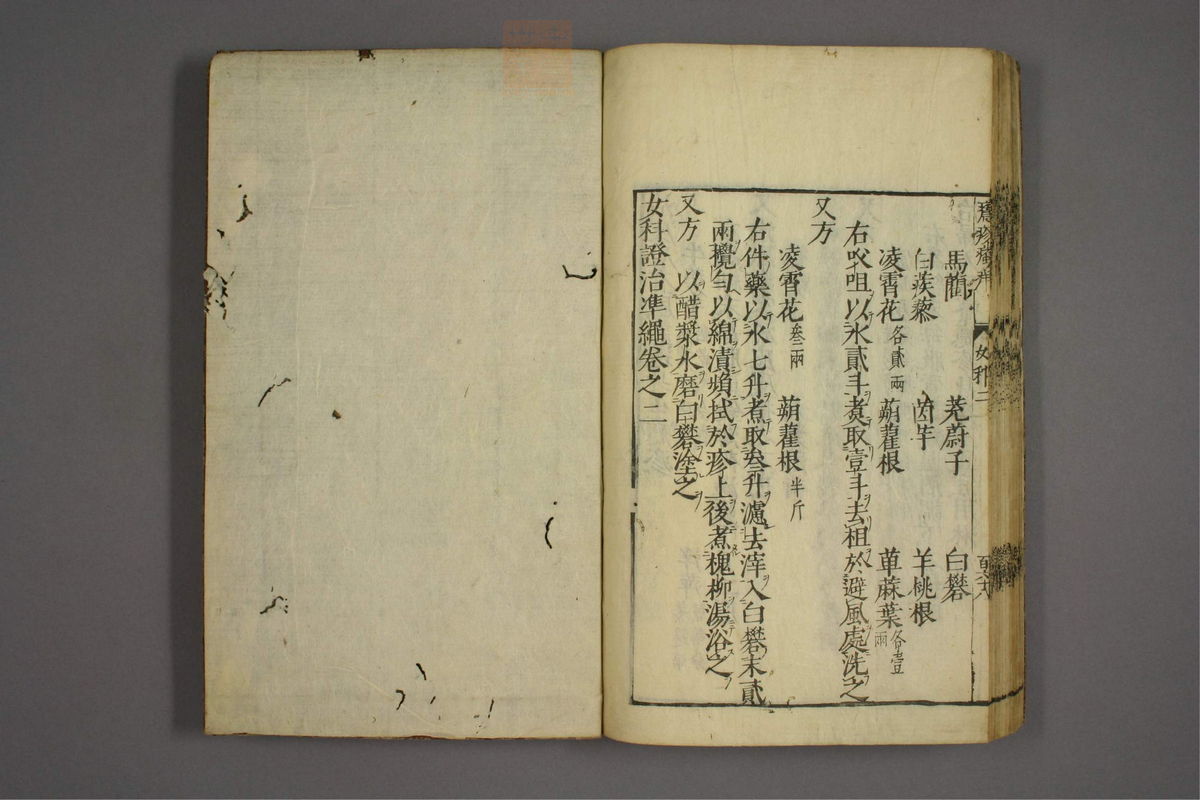 馬藺 茺蔚子 白礬
白蒺藜 茵芋 羊桃根
凌霄花各貳兩 蒴藋根 萆麻葉各壹兩
右㕮咀以水貳斗煑取壹斗去柤於避風處洗之
又方
凌霄花叄兩 蒴藋根半斤
右件藥以水七升煮取叄升濾去滓入白礬末貳
兩攪勻以綿漬頻拭於疹上後煮槐柳湯浴之
又方 以醋漿水磨白礬塗之
女科證治準繩卷之二
女科二
百六十八